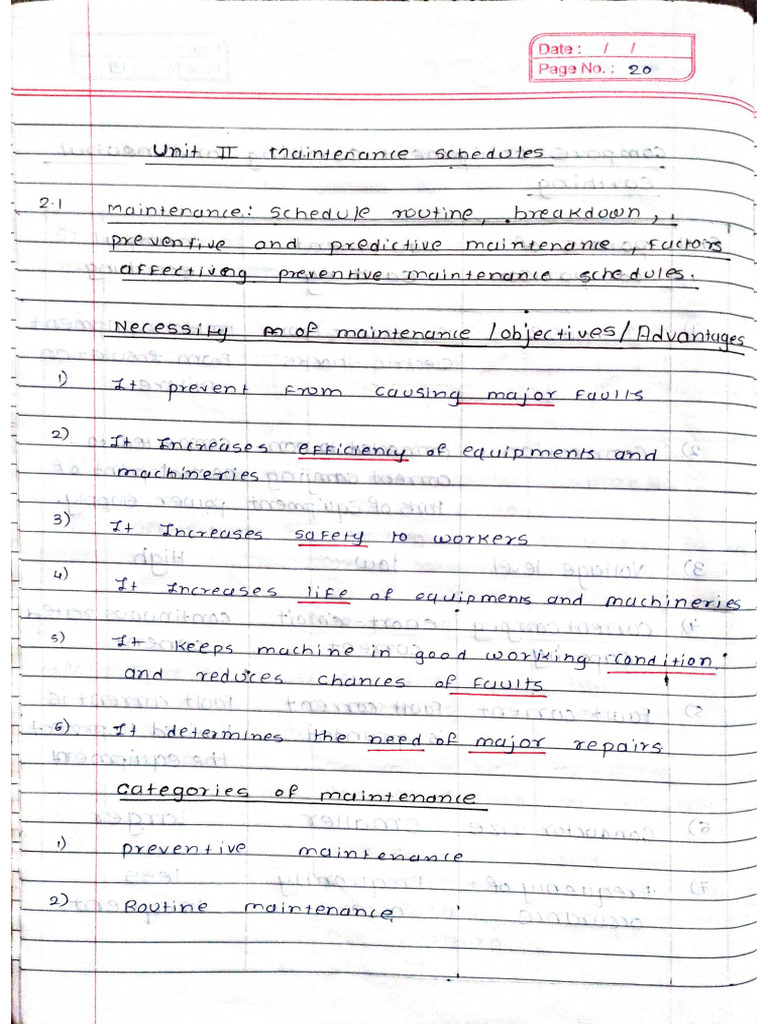 Date : / /
Page No. : 20
Unit II Maintenance schedules
2.1 Maintenance: schedule routine, breakdown,
preventive and predictive maintenance, factors
affectiveng preventive maintenance schedules.
Necessity of maintenance /objectives/Advantages
1) It prevent from causing major faults
2) It Increases efficiency of equipments and
machineries
3) It Increases safety to workers
4) It Increases life of equipments and machineries
5) It keeps machine in good working condition
and reduces chances of faults
6) It determines the need of major repairs
categories of maintenance
1) preventive maintenance
2) Routine maintenance